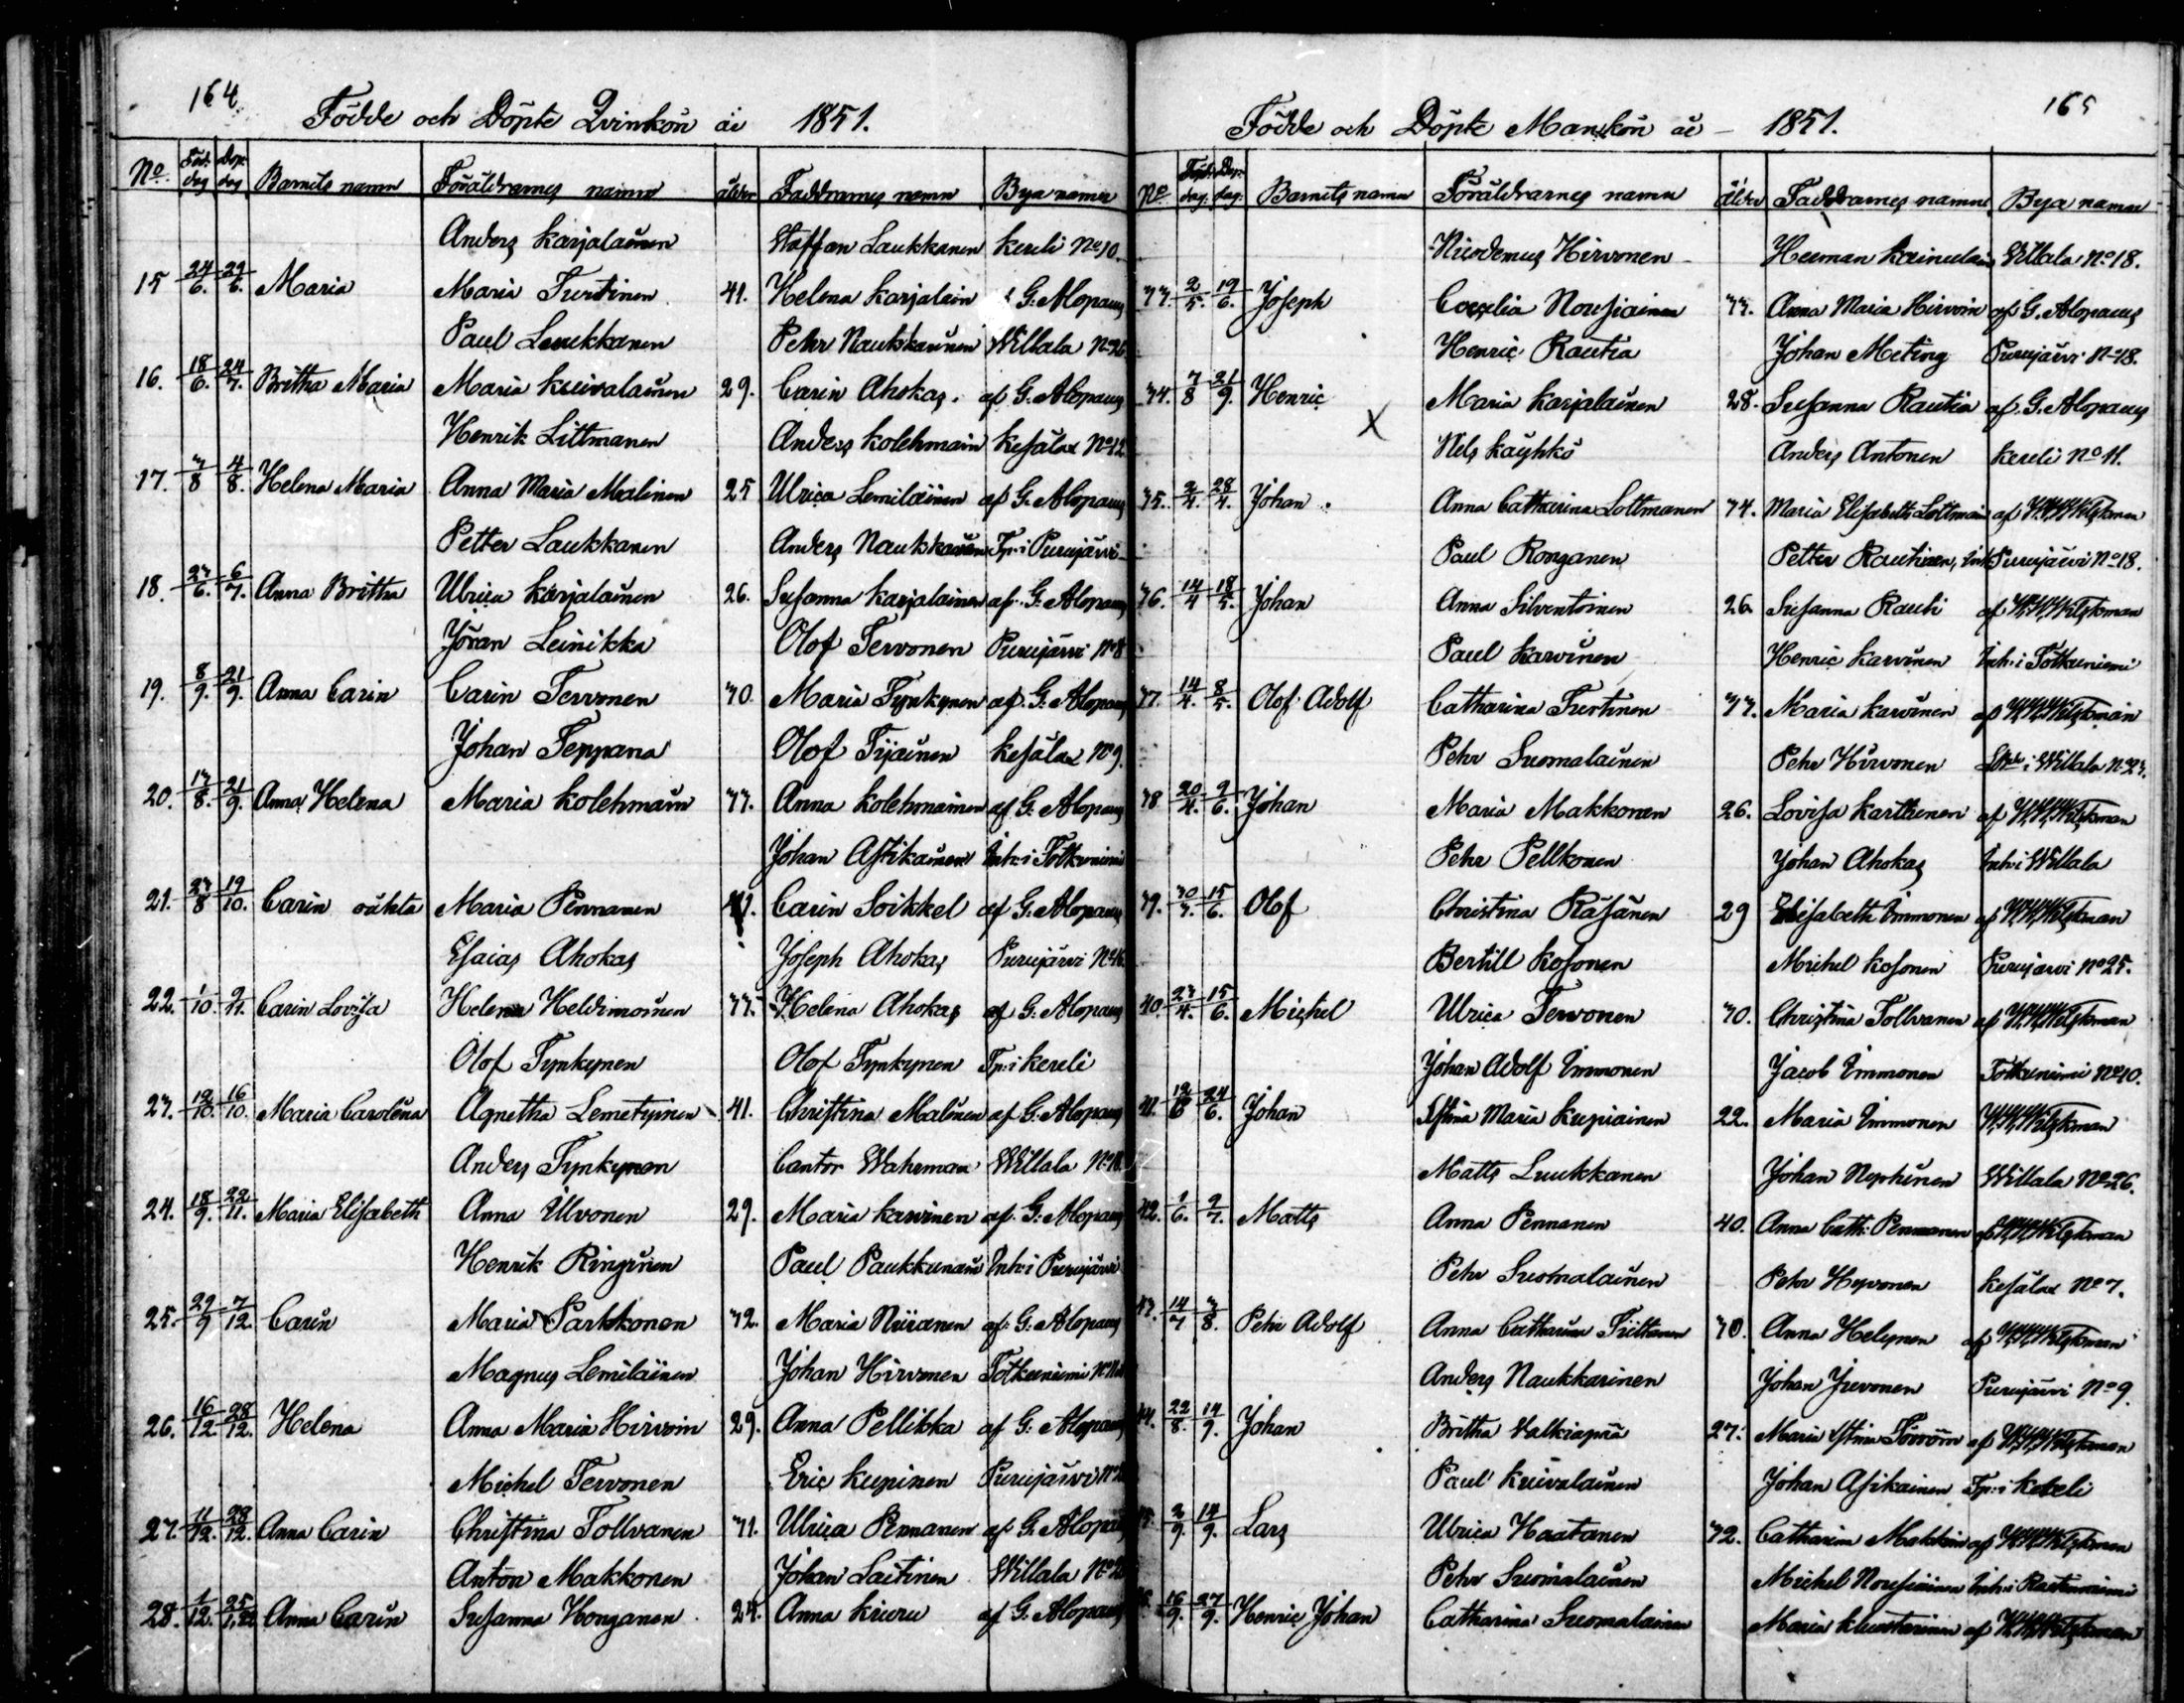 164
Födde och Döpte Qvinkön år 1851.
No. Föd. dag Dop. dag Barnets namn Föräldrarnes namn ålder Faddrarnes namn Bya namn
Anders Karjalainen Staffan Laukkanen Kereli No 10.
15 24/6. 29/6. Maria Maria Turtinen 41. Helena Karjalain G. Alopaeus
Paul Luukkanen Pehr Naukkarinen Willala No 26
16. 18/6. 24/7. Britha Maria Maria Kuivalainen 29. Carin Ahokas. af G. Alopaeus
Henrik Littmanen Anders Kolehmain Kesälax No 12
17. 3/8 4/8. Helena Maria Anna Maria Malinen 25 Ulrica Lemiläinen af G. Alopaeus
Petter Laukkanen Anders Naukkarinen Tp: i Purujärvi
18. 23/6. 6/7. Anna Britha Ulrica Karjalainen 26. Susanna Karjalainen af G. Alopaeus
Jöran Leinikka Olof Tervonen Purujärvi No 8
19. 8/9. 21/9. Anna Carin Carin Tervonen 30. Maria Tynkynen af. G. Alopaeus
Johan Teppana Olof Tijainen Kesälax No 9.
20. 13/8. 21/9. Anna Helena Maria Kolehmain 33. Anna Kolehmainen af G. Alopaeus
Johan Asikainen Inh: i Totkuniemi
21. 23/8 19/10. Carin oäkta Maria Pennanen 41. Carin Soikkel af G. Alopaeus
Esaias Ahokas Joseph Ahokas Purujärvi No 16.
22. 1/10. 2/11. Carin Lovisa Helena Heldimoinen 33. Helena Ahokas af G. Alopaeus
Olof Tynkynen Olof Tynkynen Tp: i Kereli
23. 12/10. 16/10. Maria Carolina Agnetha Lemetyinen 41. Christina Malinen af G. Alopaeus
Anders Tynkynen Cantor Wahrman Willala No 18.
24. 18/9. 22/11. Maria Elisabeth Anna Ulvonen 29. Maria Karvinen af. G. Alopaeus
Henrik Ringinen Paul Paukkunain Inh: i Purujärvi
25. 29/9 7/12. Carin Maria Parkkonen 32. Maria Niiranen af. G. Alopaeus
Magnus Lemiläinen Johan Hirvonen Totkuniemi
26. 16/12. 28/12. Helena Anna Maria Hirvoin 29. Anna Pellikka af G. Alopaeus
Michel Tervonen Eric Kupinen Purujärvi
27. 11/12. 28/12. Anna Carin Christina Tollvanen 31. Ulrica Pennanen af G. Alopaeus
Anton Makkonen Johan Laitinen Willala
28. 1/12. 25/12 Anna Carin Susanna Honganen 24. Anna Kiuru af G. Alopaeus
165
Födde och Döpte Mankön år 1851.
No Född: dag. Dop: dag. Barnets namn Föräldrarnes namn ålder Faddrarnes namn Bya namn
Nicodemus Hirvonen Herman Kainulain Willala No 18.
33. 2/5. 19/6. Joseph Cecelia Nousiainen 33. Anna Maria Hirvoin af G. Alopaeus
Henric Rautia Johan Meting Purujärvi No 18.
34. 7/8 21/9. Henric X Maria Karjalainen 28. Susanna Rautia af. G. Alopaeus
Nils Käyhkö Anders Antonen Kereli No 11.
35. 2/4. 28/4. Johan Anna Catharina Lottmanen 34. Maria Elisabeth Lottmain af Wilskman
Paul Ronganen Petter Rautiainen, Inh Purujärvi No 18.
36. 14/4 18/5. Johan Anna Silventoinen 26. Susanna Rauti af Wilskman
Paul Karvinen Henric Karvinen Inh: i Totkuniemi
37. 14/4. 8/5. Olof Adolf Catharina Turtinen 33. Maria Karvinen af Wilskman
Pehr Suomalainen Pehr Hirvonen i Willala No 23.
38. 20/4. 9/6. Johan Maria Makkonen 26. Lovisa Karttunen af Wilskman
Pehr Pellkonen Johan Ahokas Inh: i Willala
39. 30/3. 15/6. Olof Christina Räsänen 29 Elisabeth Immonen af Wilskman
Bertill Kosonen Michel Kosonen Purujärvi No 25.
40. 23/4. 15/6. Michel Ulrica Tervonen 30. Christina Tollvanen af Wilskman
Johan Adolf Immonen Jacob Immonen Totkuniemi No 10.
41. 12/6 24/6. Johan Stina Maria Kupiainen 22. Maria Immonen Wilskman
Matts Luukkanen Johan Nephinen Willala No 26.
42. 1/6. 9/7. Matts Anna Pennanen 40. Anna Cath: Pennanen af Wilskman
Pehr Suomalainen Pehr Hyvonen Kesälax No 7.
43. 14/7 3/8. Pehr Adolf Anna Catharina Tiittanen 30. Anna Helynen af Wilskman
Anders Naukkarinen Johan Juvonen Purujärvi No 9.
44. 22/8. 14/9. Johan Britha Valkiapää 27. Maria Stina af Wilskman
Paul Kuivalainen Johan Asikainen Tp: i Kereli
2/9. 14/9. Lars Ulrica Haatanen 32. Catharina Makkoin af Wilskman
Pehr Suomalainen Michel Nousiainen Inh: i Rastiniemi
16/9. 27/9. Henric Johan Catharina Suomalainen Maria af Wilskman